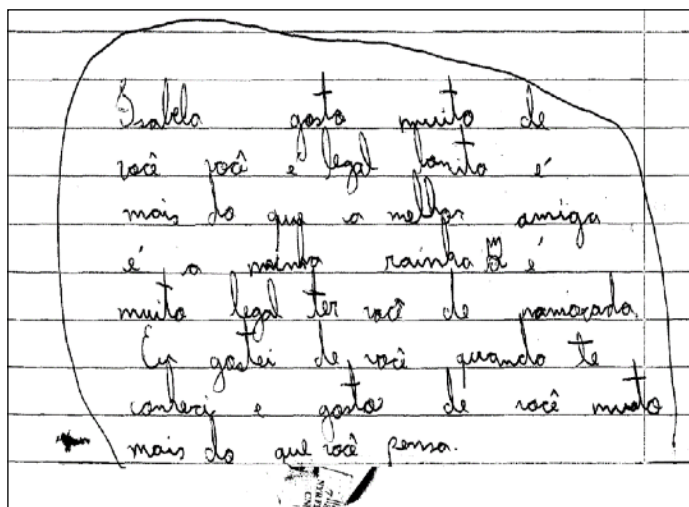 Isabela gosto muito de
você você é legal bonita é
mais do que a melhor amiga
é a minha rainha é
muito legal ter você de namorada
Eu gostei de você quando te
conheci e gosto de você muito
mais do que você pensa.